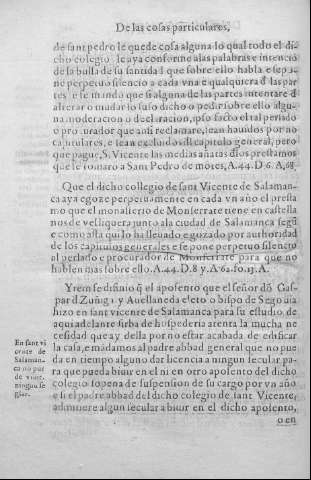 De las cosas particulares,
de sant pedro le quede cosa alguna lo qual todo el di-
cho colegio le aya conforme a las palabras e intenció
de la bulla de su santidad que sobre ello habla e
ne perpetuo silencio a cada vna e qualquiera d las par
tes e se mando que si alguna de las partes intentare d
alterar o mudar lo suso dicho o pedir sobre ello algu-
na moderacion o declaracion, ipso facto el tal perlado
o procurador que ansi reclamare, sean hauidos por no
capitulares, e sean excluidos del capitulo general, pero
que pague S. Vicente las medias añatas dlos prestamos
que le tomaro a Sant Pedro de mótes, A.44.D.6.A,68.
Que el dicho collegio de sant Vicente de Salaman-
ca aya e goze perpetuamente en cada vn año el presta
mo que el monasterio de Monserrate tiene en castella
nos de vellíquera junto ala ciudad de Salamanca segú
e como asta qui lo ha lleuado e gozado por authoridad
de los capitulos generales e se pone perpetuo silencio
al perlado e procurador de Monserrate para que no
hablen mas sobre ello. A.44.D.8 y.A.62.fo.13.A.
Y tem se difinio q̃ el aposento que el señor dõ Gas-
par d Zuñiga y Auellaneda electo obispo de Segouia
hizo en sant vicente de Salamanca para su estudio de
aqui adelante sirba de hospederia atenta la mucha ne
cesidad que ay della por no estar acabada de edificar
la casa, e mádamos al padre abbad general que no pue
da en tiempo alguno dar licencia a ningun secular pa-
ra que pueda biuir en el ni en otro aposento del dicho
colegio sopena de suspension de su cargo por vn año
e si el padre abbad del dicho colegio de sant Vicente,
admitiere algun secular a biuir en el dicho aposento,
o en
En sant vi
cente de
Salaman-
ca no pue
de viuir
ningun se
glar.